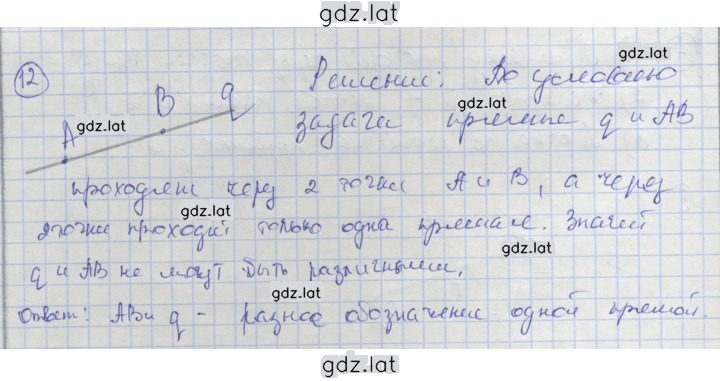 gdz.lat
12 Решение: По условию gdz.lat
A gdz.lat B q задачи прямые q и AB gdz.lat
проходят через 2 точки A и B, а через
2 точки проходит только одна прямая. Значит gdz.lat
q и AB не могут быть различными. gdz.lat
Ответ: AB и q - разное обозначение одной прямой. gdz.lat
gdz.lat